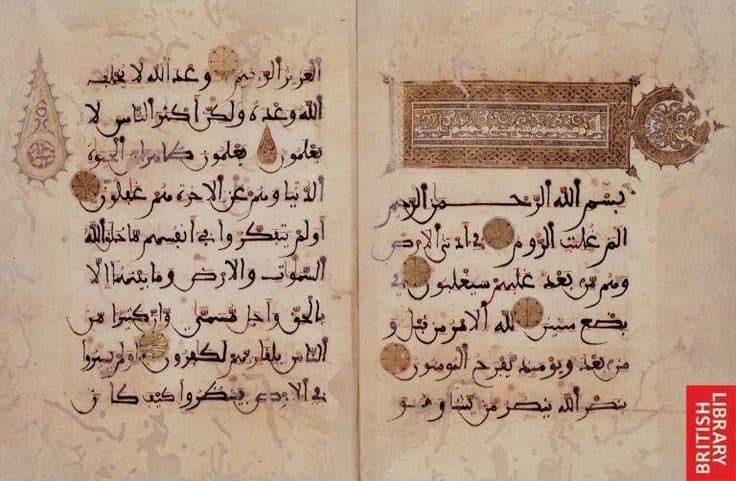 بسم الله الرحمن الرحيم
الم غلبت الروم في ادنى الارض
وهم من بعد غلبهم سيغلبون في
بضع سنين لله الامر من قبل و
من بعد ويومئذ يفرح المومنون
بنصر الله ينصر من يشا وهو
العزيز الرحيم وعد الله لا يخلف
الله وعده ولكن اكثر الناس لا
يعلمون يعلمون ظاهرا من الحيوة
الدنيا وهم عن الاخرة هم غفلون
اولم يتفكروا في انفسهم ما خلق الله
السموات والارض وما بينهما الا
بالحق واجل مسمى وان كثيرا من
الناس بلقاي ربهم لكفرون اولم يسيروا
في الارض فينظروا كيف كان
BRITISH
LIBRARY